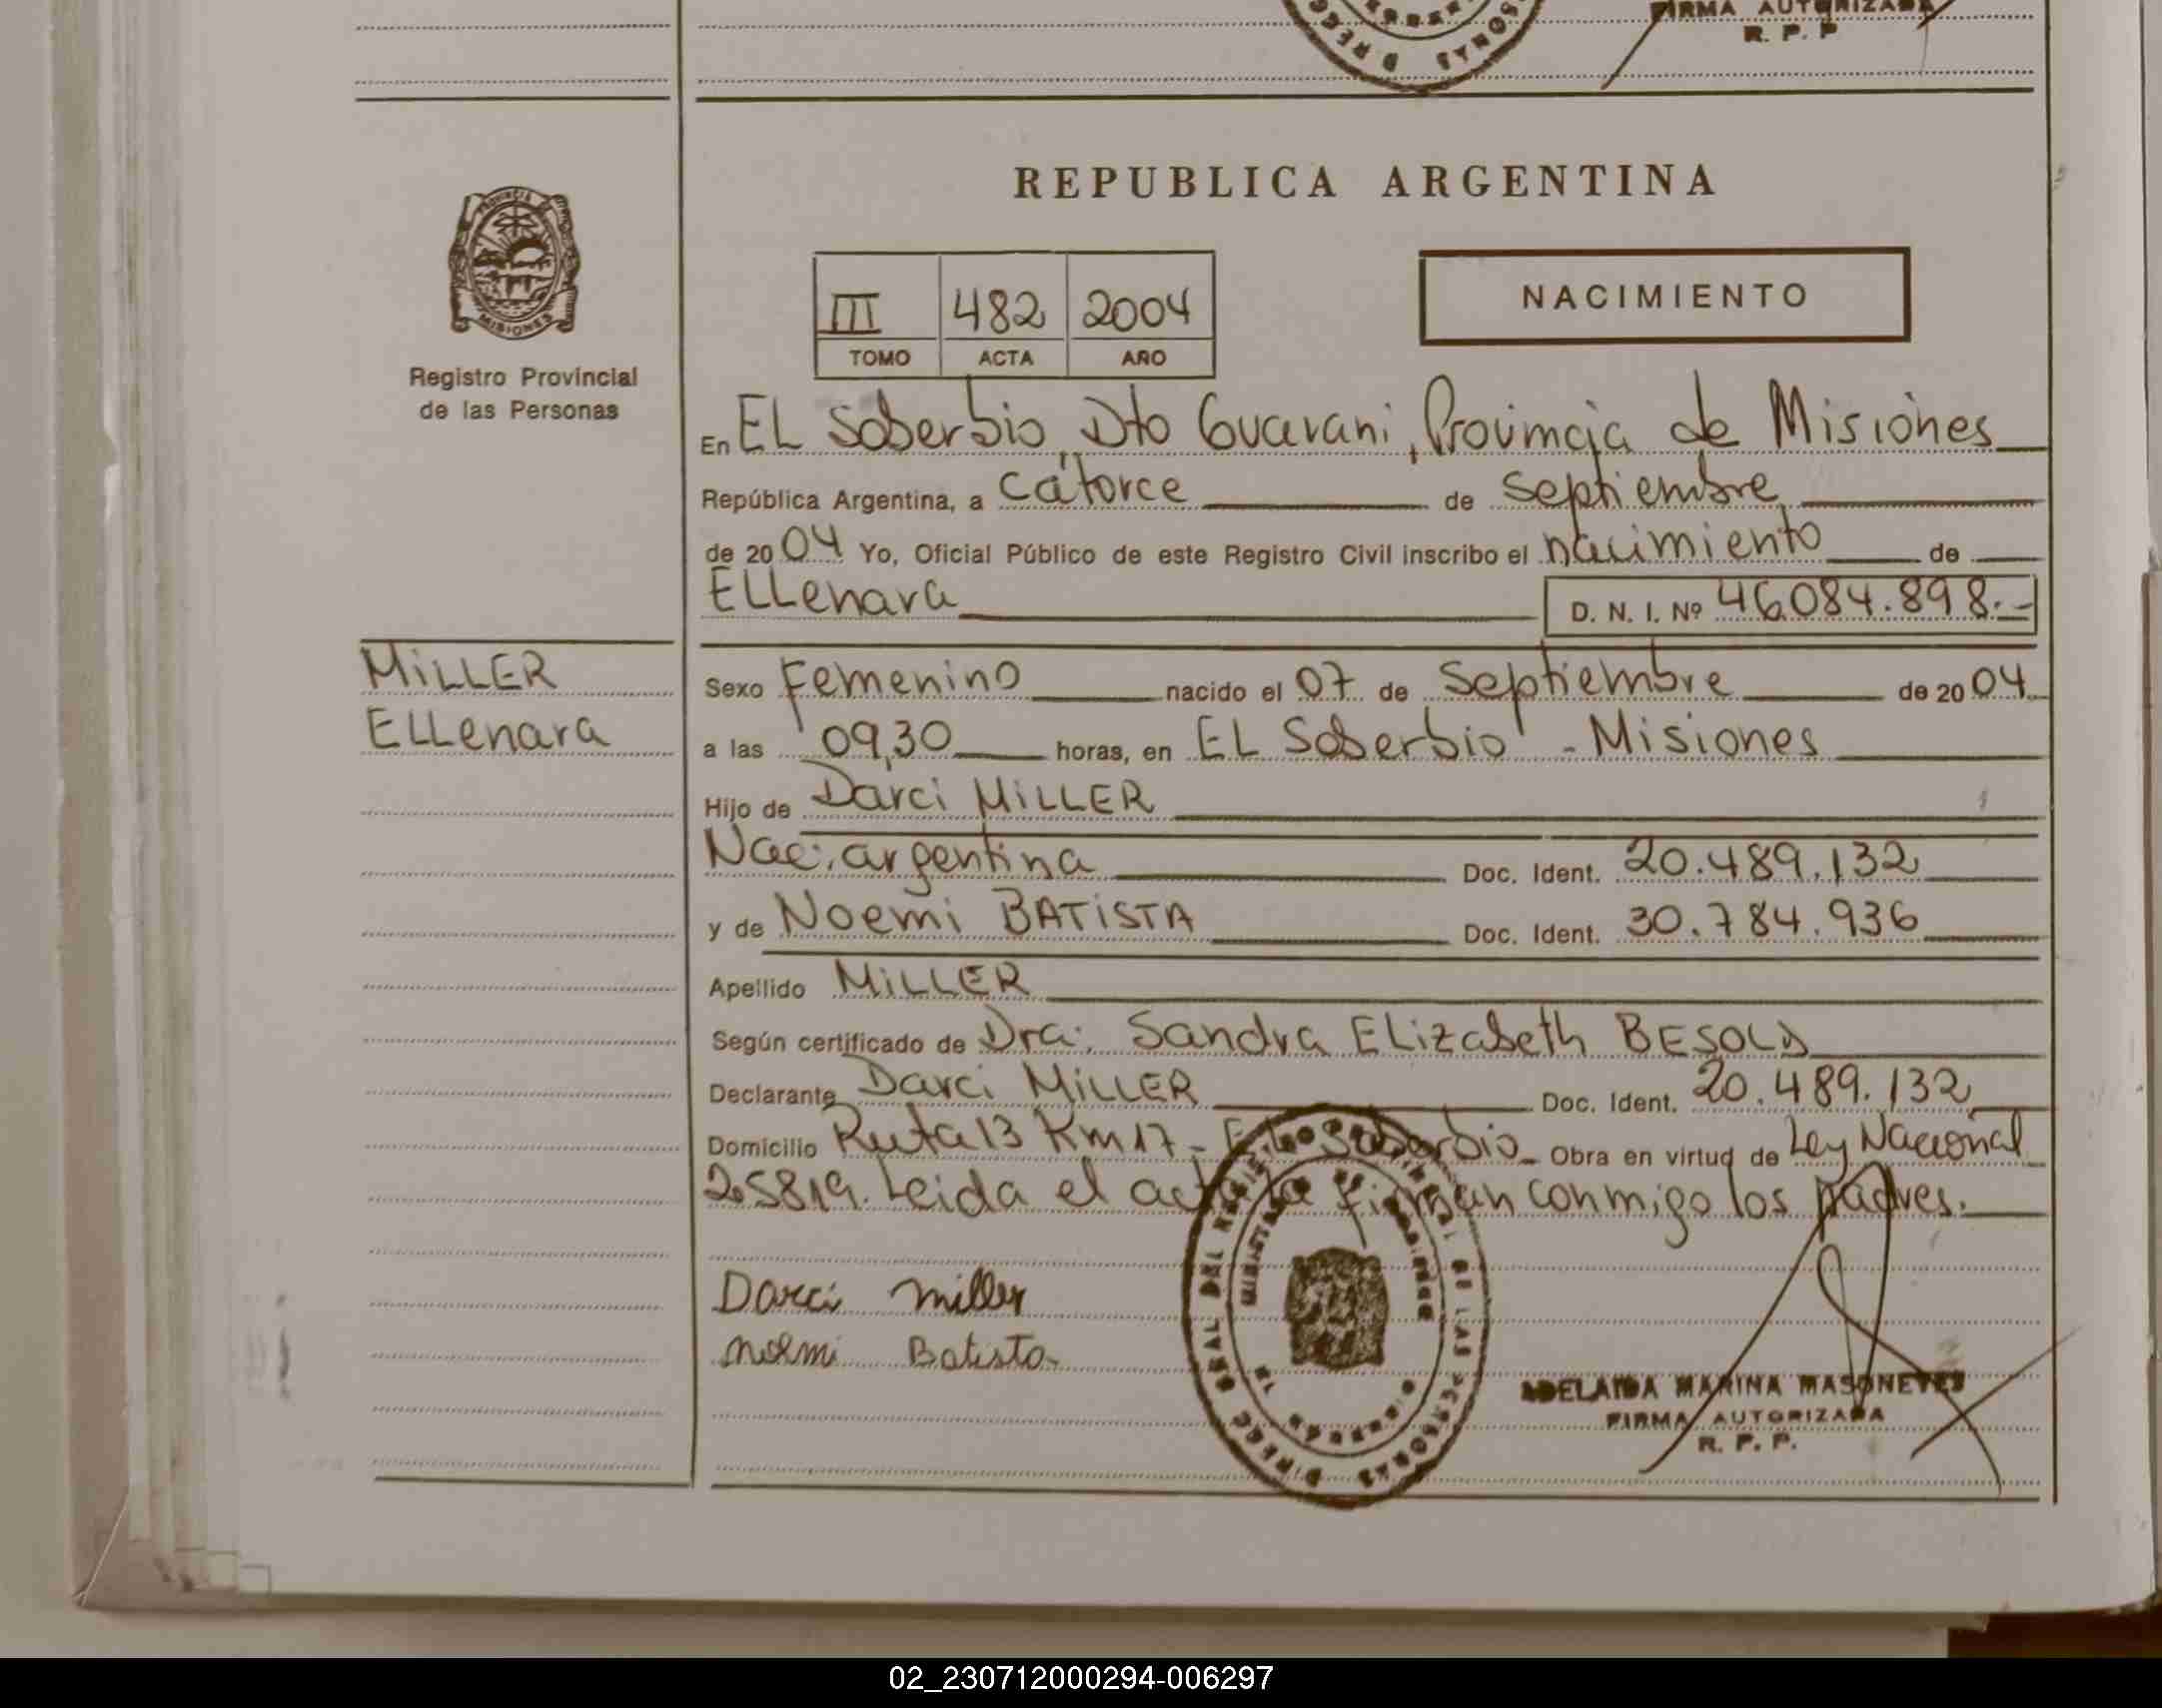 FIRMA AUTORIZADA
R. P. P
REPUBLICA ARGENTINA
PROVINCIA
MISIONES
Registro Provincial
de las Personas
III 482 2004
TOMO ACTA AÑO
NACIMIENTO
En EL Soberbio, Dto Guarani, Provincia de Misiones
República Argentina, a catorce de septiembre
de 2004 Yo, Oficial Público de este Registro Civil inscribo el nacimiento de
ELLenara D. N. I. Nº 46.084.898.-
MiLLER
ELLenara
Sexo Femenino nacido el 07 de Septiembre de 2004
a las 09,30 horas, en EL Soberbio - Misiones
Hijo de Darci MiLLER
Nac: argentina Doc. Ident. 20.489.132
y de Noemi BATiSTA Doc. Ident. 30.784.936
Apellido MiLLER
Según certificado de Dra: Sandra ELizabeth BESOLD
Declarante Darci MiLLER Doc. Ident. 20.489.132
Domicilio Ruta 13 Km 17 - EL Soberbio - Obra en virtud de Ley Nacional
25819. Leida el acta la firman conmigo los padres.
Darci Miller
Noemi Batista
ADELAIDA MARINA MASONEVES
FIRMA AUTORIZADA
R. P. P.
02_230712000294-006297